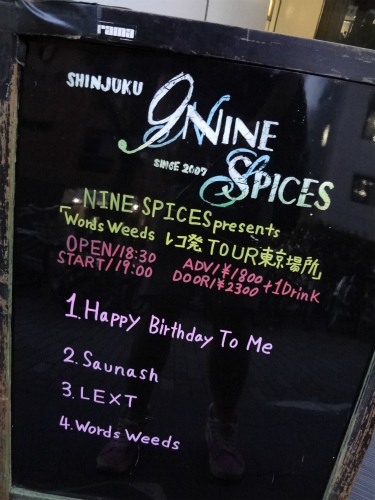 rama
SHINJUKU
9 NINE
SINCE 2007
SPICES
NINE SPICES presents
「Words Weeds レコ発 TOUR東京場所」
OPEN/18:30 ADV/¥1800 +1Drink
START/19:00 DOOR/¥2300
1. Happy Birthday To Me
2. Saunash
3. LEXT
4. Words Weeds